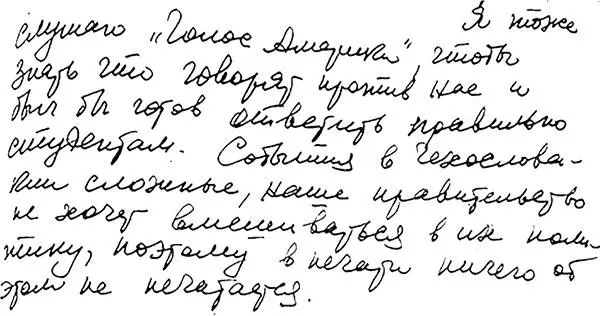 Я тоже
слушаю „Голос Америки", чтобы
знать что говорят против нас и
был бы готов ответить правильно
студентам. События в Чехослова-
кии сложные, наше правительство
не хочет вмешиваться в их поли
тику, поэтому в печати ничего об
этом не печатается.